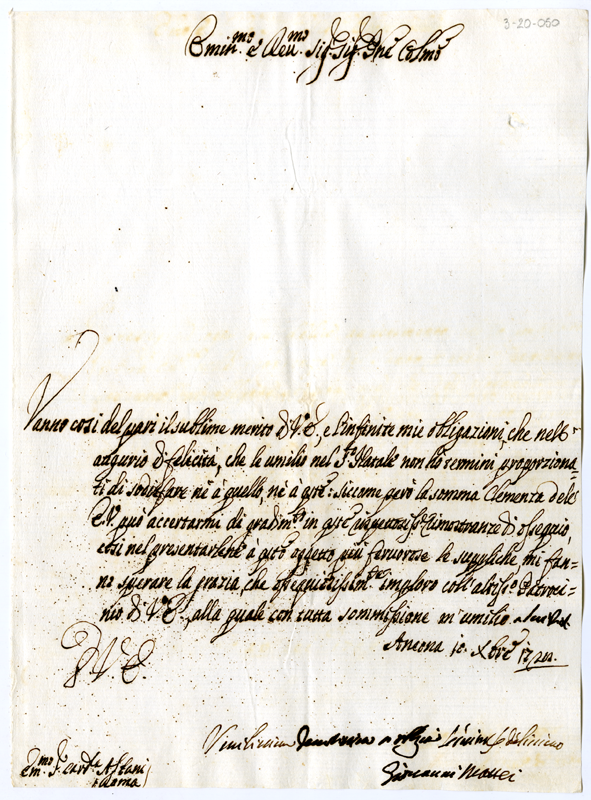 3-20-050
Emin.mo e Reu.mo Sig.r Sig.r Pne Colmo
Vanno così del pari il sublime merito di V.E., e l'infinite mie obligazioni, che nell'
augurio di felicità, che le umilio nel S.to Natale non hò termini proporziona
ti di sodisfare nè à quello, nè à q.ste: siccome però la somma Clemenza dell'
E.V. può accertarmi di gradim.to in q.ste dimostranze di ossequio,
così nel presentarlene à q.sto oggetto più feruorose le suppliche mi fan-
no sperare la grazia, che ossequiosissim.te imploro coll'altiss.o Patroci-
nio di V.E., alla quale con tutta sommissione m'umilio
Ancona 10 Xbre
D.V.E.
Em.mo S.r Card.le Albani
Roma
Giovanni